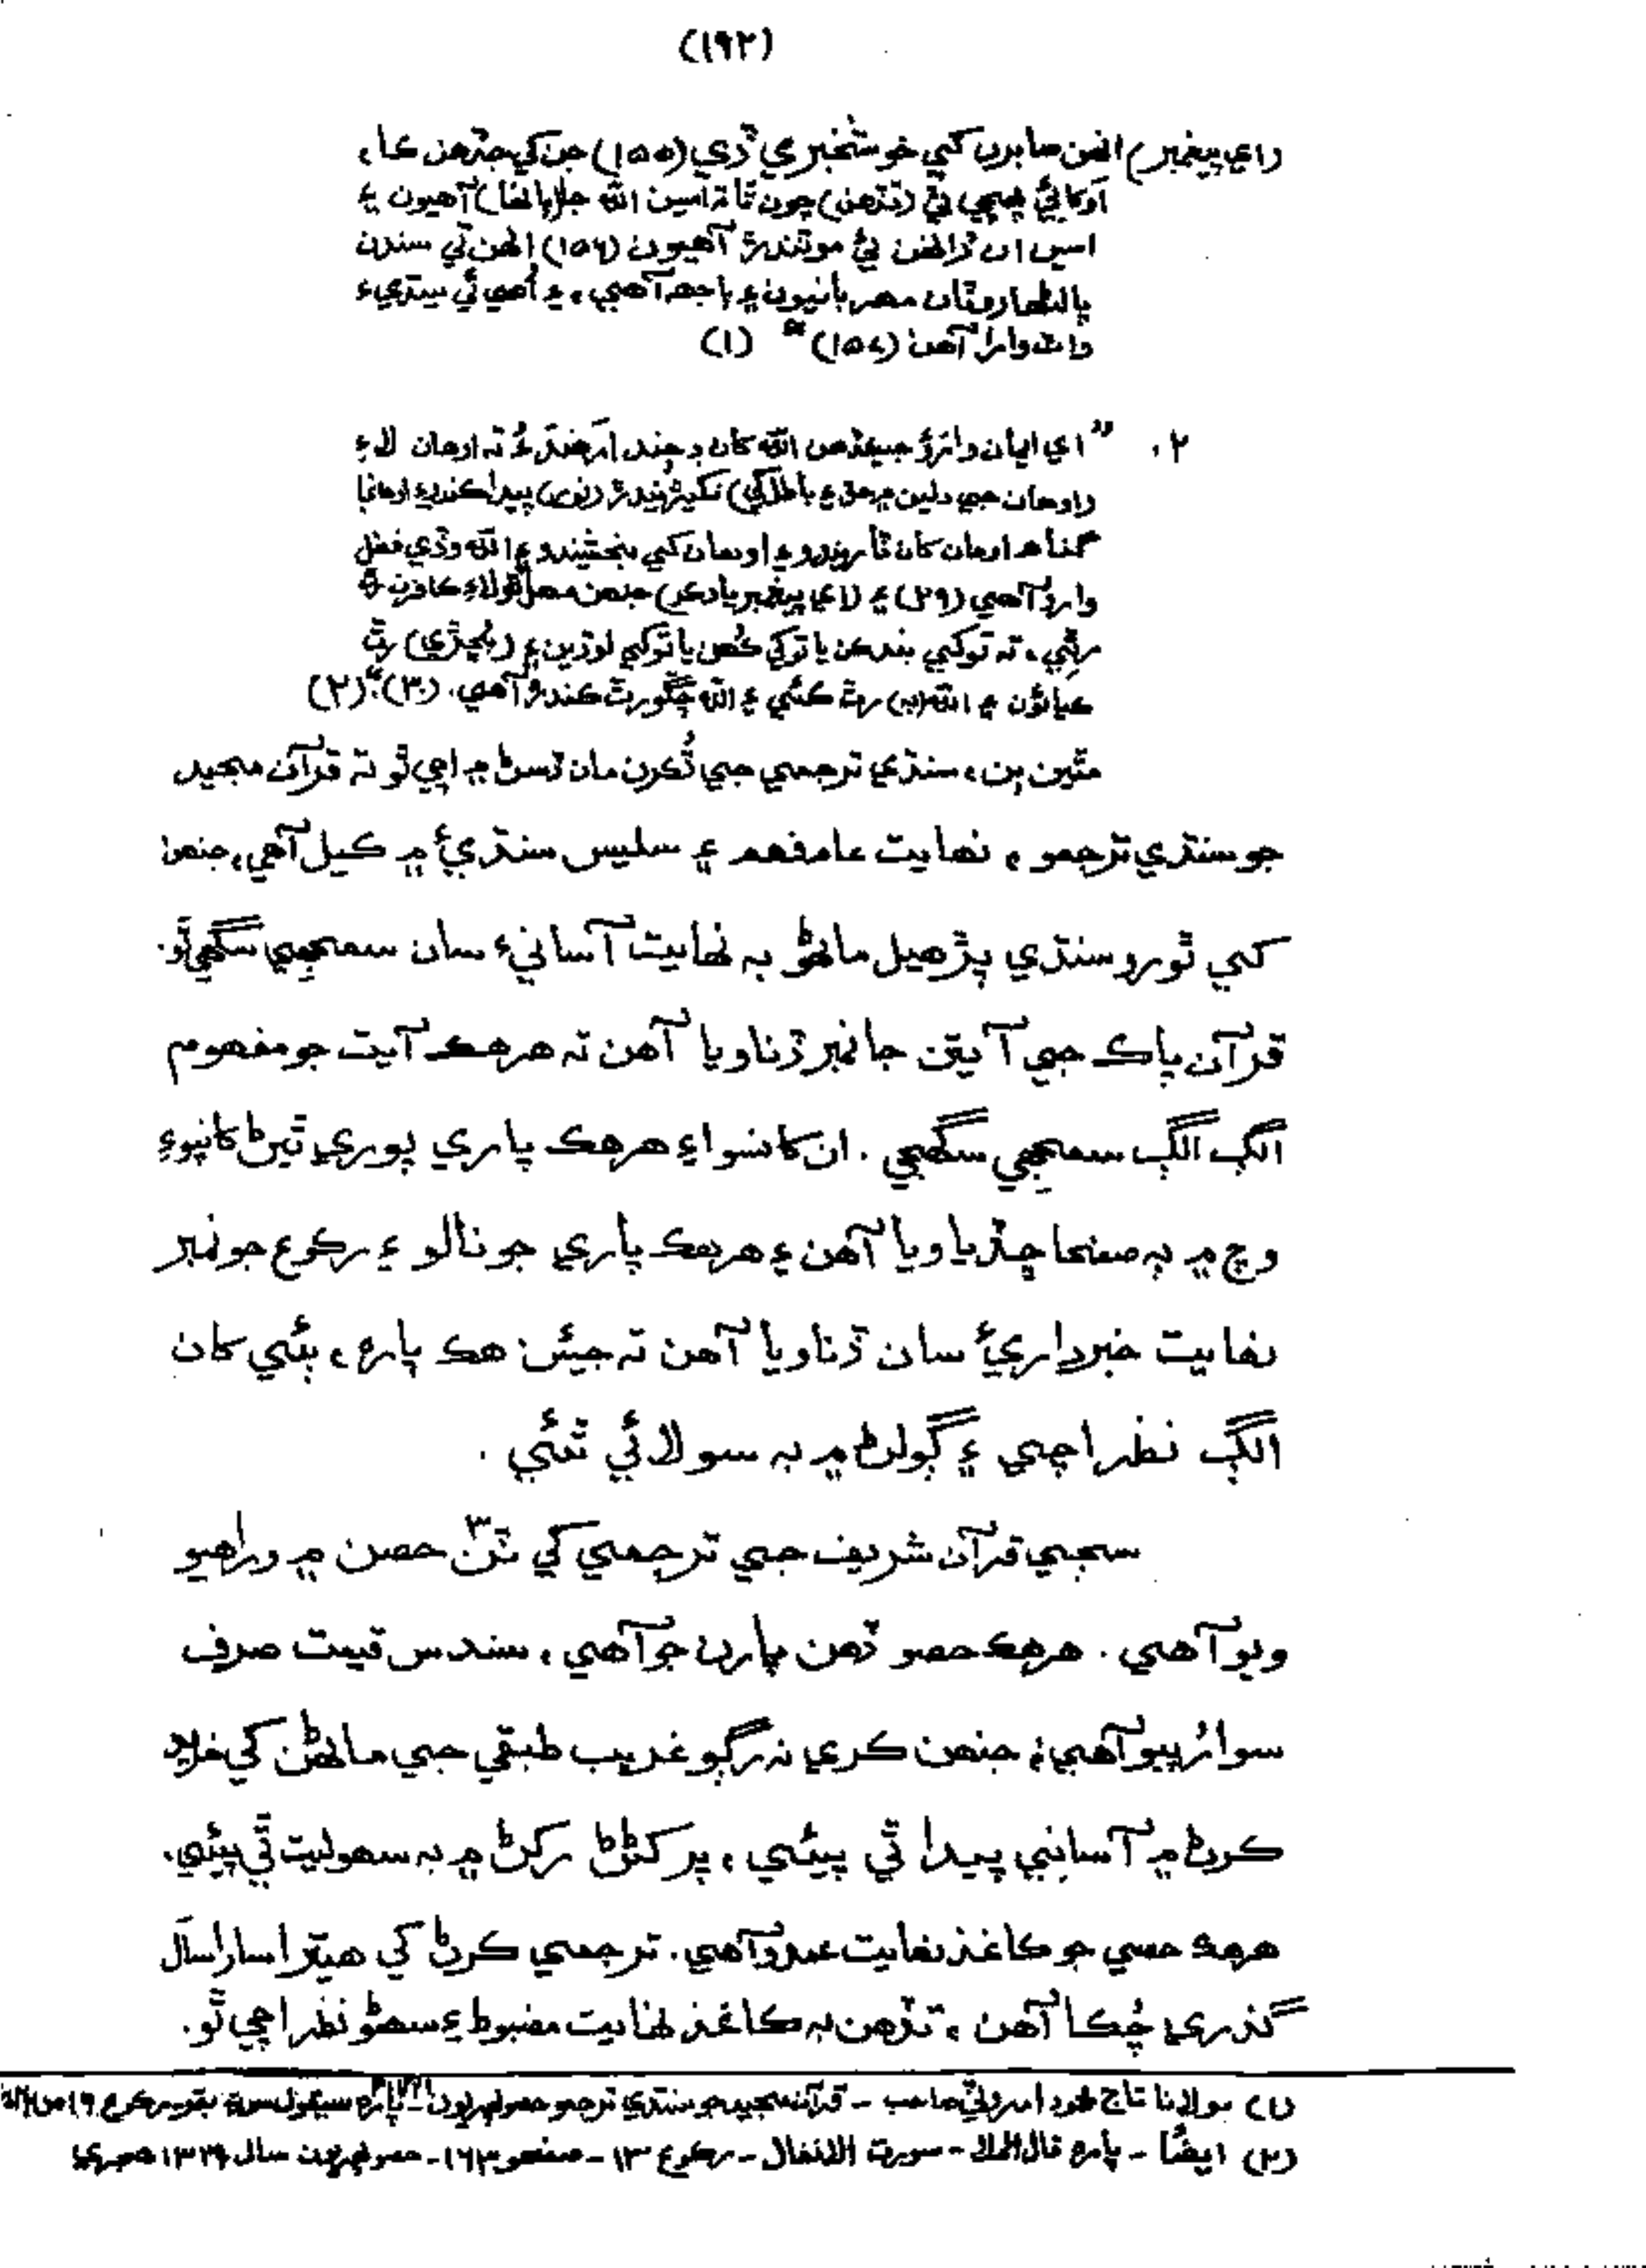 (١٩٢)
(اي پيغمبر) انهن صابرن کي خوشخبري ڏي (١٥٥) جن کي جڏهن ڪا،
اَوکائي پهچي ٿي (تڏهن) چون ٿا تہ اسين الله جا (ٻانها) آهيون ۽
اسين ان ڏانهن ئي موٽندڙ آهيون (١٥٦) انهن تي سندن
پالڻهار وٽان مهربانيون ۽ ٻاجهہ آهي، ۽ اُهي ئي سڌريءَ
واٽ وارا آهن (١٥٧)“ (١)
٢. ”اي ايمان وارؤ جيڪڏهن الله کان ڊڄندا رَهندؤ تہ اوهان لاءِ
(اوهان جي دلين ۾ حق ۽ باطل کي) نکيڙيندڙ (نور) پيدا ڪندو ۽ اوهانجا
گناهہ اوهان کان ٽاريندو ۽ اوهان کي بخشيندو ۽ الله وڏي فضل
وارو آهي (٢٩) ۽ (اي پيغمبر ياد ڪر) جنهن مهل تولاءِ ڪافرن ٿي
رٿي، تہ توکي بند ڪن يا توکي ڪُهن يا توکي لوڌين ۽ (بڇڙي) رٿ
ڪيائون ۽ الله (بہ) رٿ ڪئي ۽ الله چڱو رٿ ڪندڙ آهي. (٣٠)“ (٢)
مٿين ٻن، سنڌي ترجمي جي ٽُڪرن مان ڏسڻ ۾ اچي ٿو تہ قرآن مجيد
جو سنڌي ترجمو، نهايت عام فهم ۽ سليس سنڌيءَ ۾ ڪيل آهي، جنهن
کي ٿورو سنڌي پڙهيل ماڻهو بہ نهايت آسانيءَ سان سمجهي سگهي ٿو.
قرآن پاڪ جي آيتن جا نمبر ڏنا ويا آهن تہ هر هڪ آيت جو مفهوم
الڳ الڳ سمجهي سگهجي. ان کانسواءِ هر هڪ پاري پوري ٿيڻ کانپوءِ
وچ ۾ ٻہ صفحا ڇڏيا ويا آهن ۽ هر هڪ پاري جو نالو ۽ رڪوع جو نمبر
نهايت خبرداريءَ سان ڏنا ويا آهن تہ جيئن هڪ پارو، ٻئي کان
الڳ نظر اچي ۽ ڳولڻ ۾ بہ سولائي ٿئي.
سڄي قرآن شريف جي ترجمي کي ٽن ٣ حصن ۾ ورهايو
ويو آهي. هر هڪ حصو ڏهن پارن جو آهي، سندس قيمت صرف
سوا رپيو آهي؛ جنهن ڪري نہ رڳو غريب طبقي جي ماڻهن کي خريد
ڪرڻ ۾ آساني پيدا ٿي پيئي، پر کڻڻ رکڻ ۾ بہ سهوليت ٿي پيئي.
هر هڪ حصي جو ڪاغذ نهايت عمدو آهي. ترجمي ڪرڻ کي هيترا سارا سال
گذري چُڪا آهن، تڏهن بہ ڪاغذ نهايت مضبوط ۽ سهڻو نظر اچي ٿو.
(١) مولانا تاج محمود امروٽي صاحب - قرآن مجيد جو سنڌي ترجمو حصو پهريون پارو سيقول سورة بقره رڪوع ١٩ ص
(٢) ايضًا - پارو قال الملا - سورت الانفال - رڪوع ١٣ - صفحو ١٦٣ - حصو پهريون سال ١٣٣٩ هجري